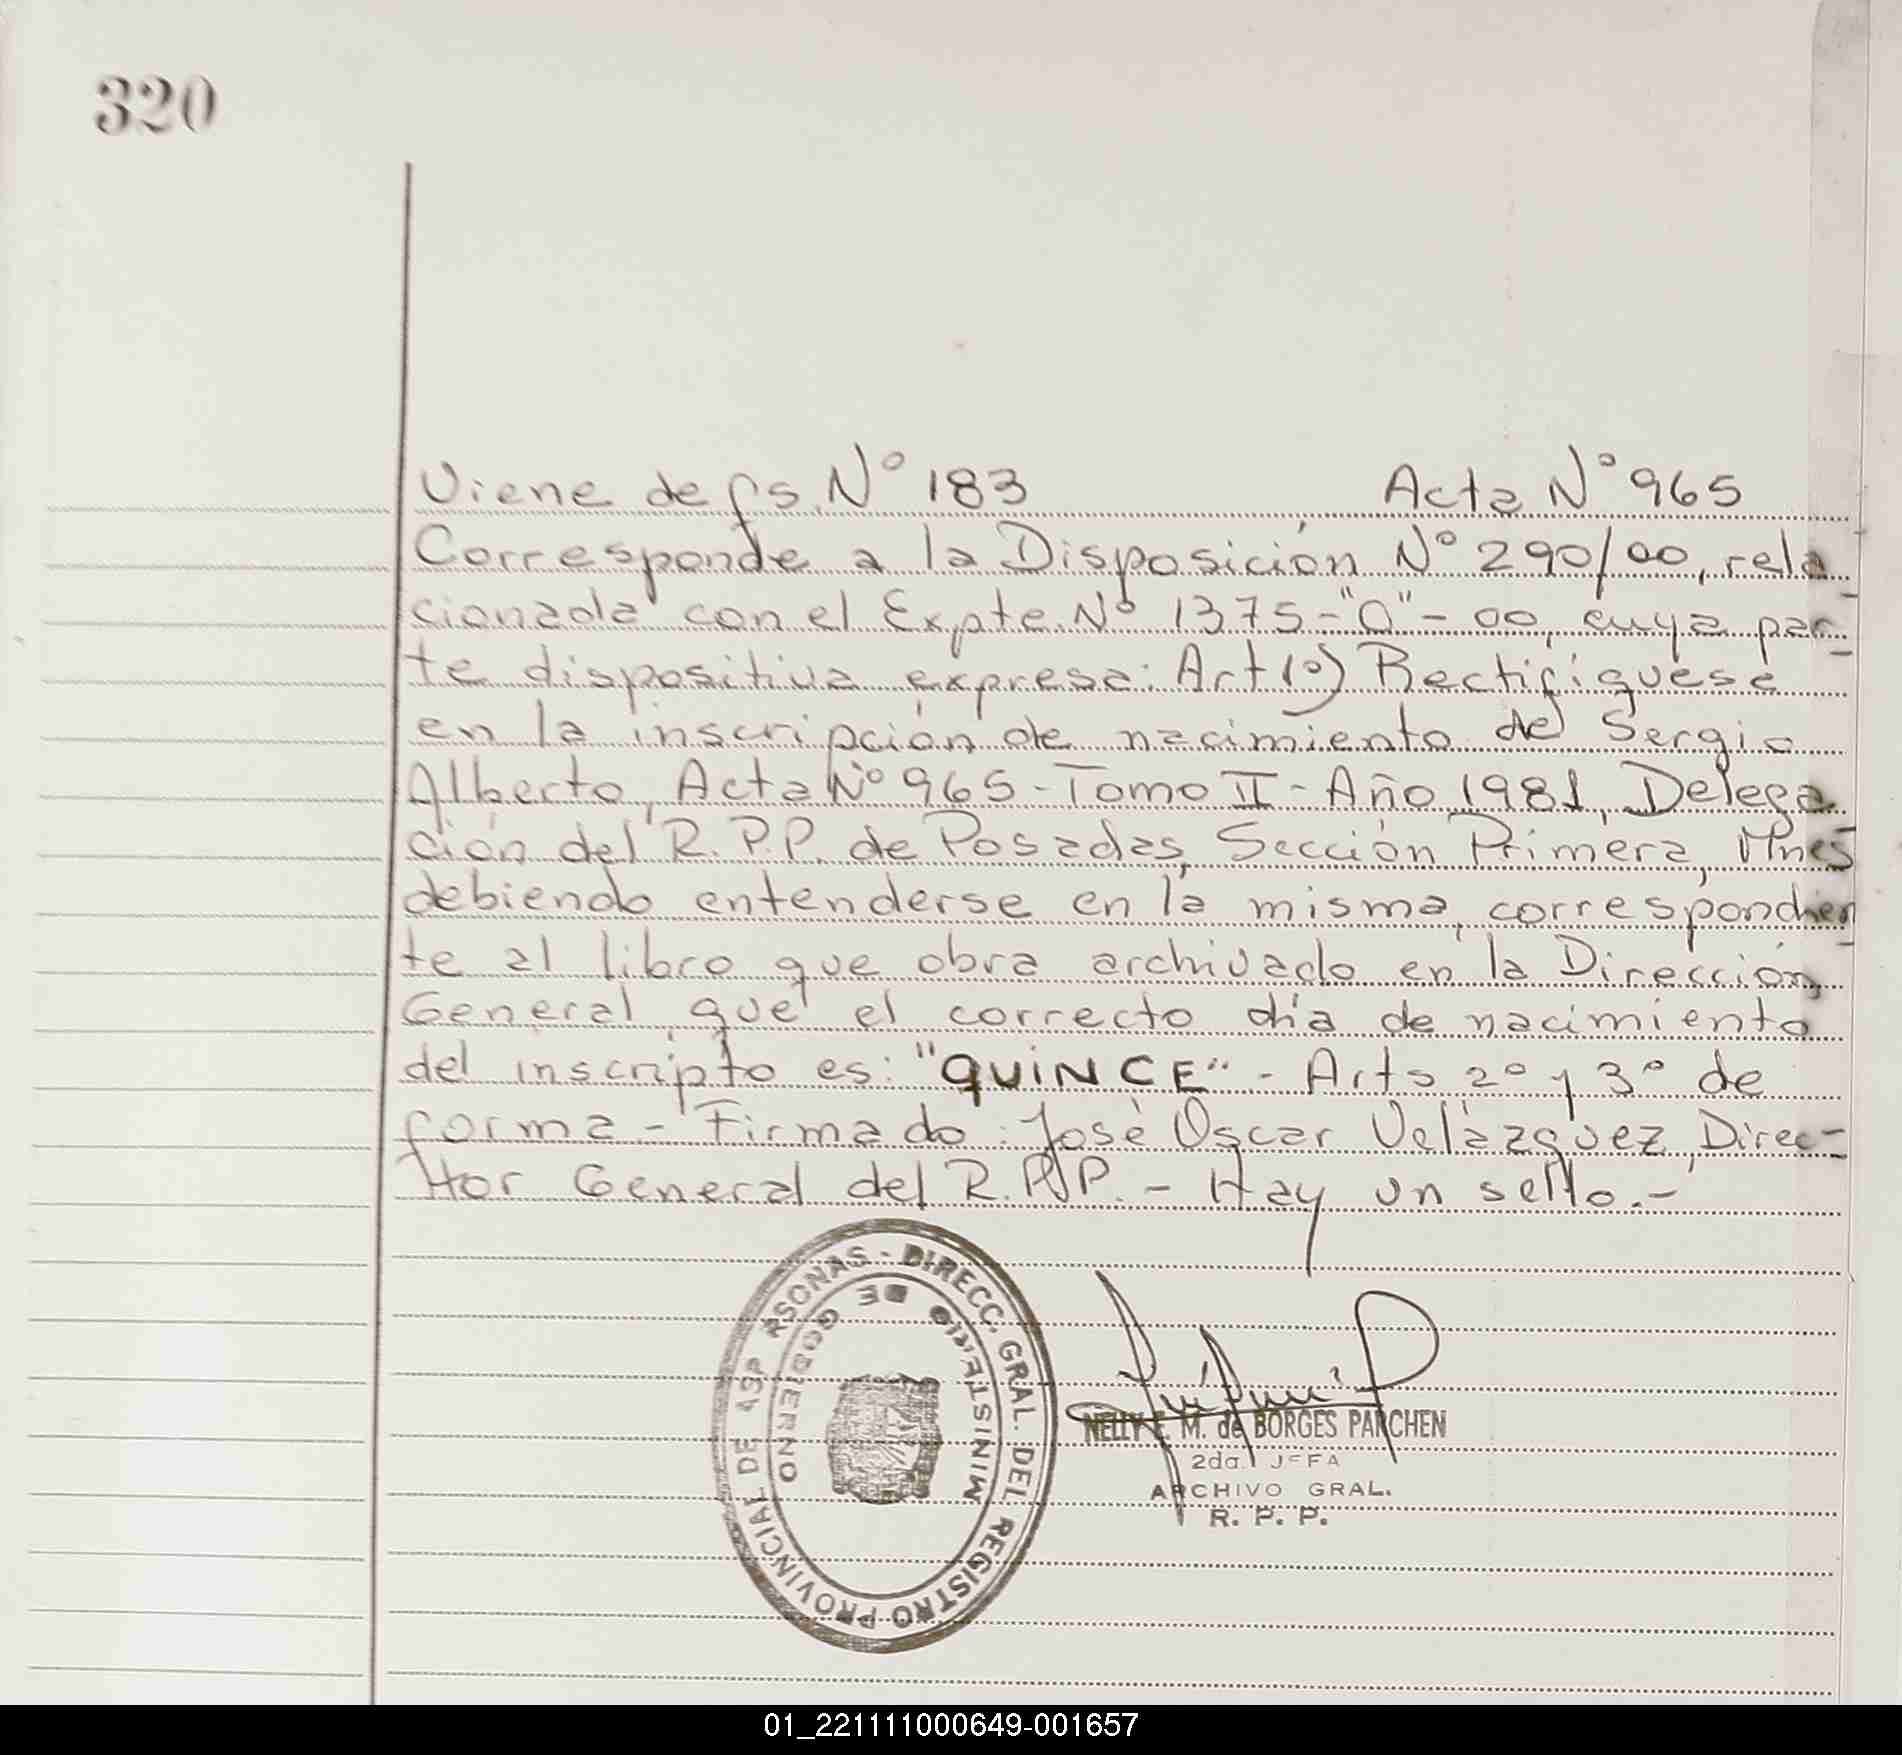 320
Viene de fs. Nº 183 Acta Nº 965
Corresponde a la Disposición Nº 290/00, rela
cionada con el Expte. Nº 1375-"O"-00, cuya par_
te dispositiva expresa: Art 1º) Rectifíquese
en la inscripción de nacimiento de Sergio
Alberto, Acta Nº 965 - Tomo II - Año 1981, Delega
ción del R.P.P. de Posadas, Sección Primera, Mnes
debiendo entenderse en la misma, correspondien
te al libro que obra archivado en la Dirección
General, que el correcto día de nacimiento
del inscripto es: "QUINCE" - Arts 2º y 3º de
forma - Firmado: José Oscar Velázquez, Direc-
tor General del R.P.P. - Hay un sello.-
DIRECC. GRAL. DEL REGISTRO PROVINCIAL DE RSONAS -
MINISTERIO DE GOBIERNO
NELLY E. M. de BORGES PARCHEN
2da. JEFA
ARCHIVO GRAL.
R. P. P.
01_221111000649-001657